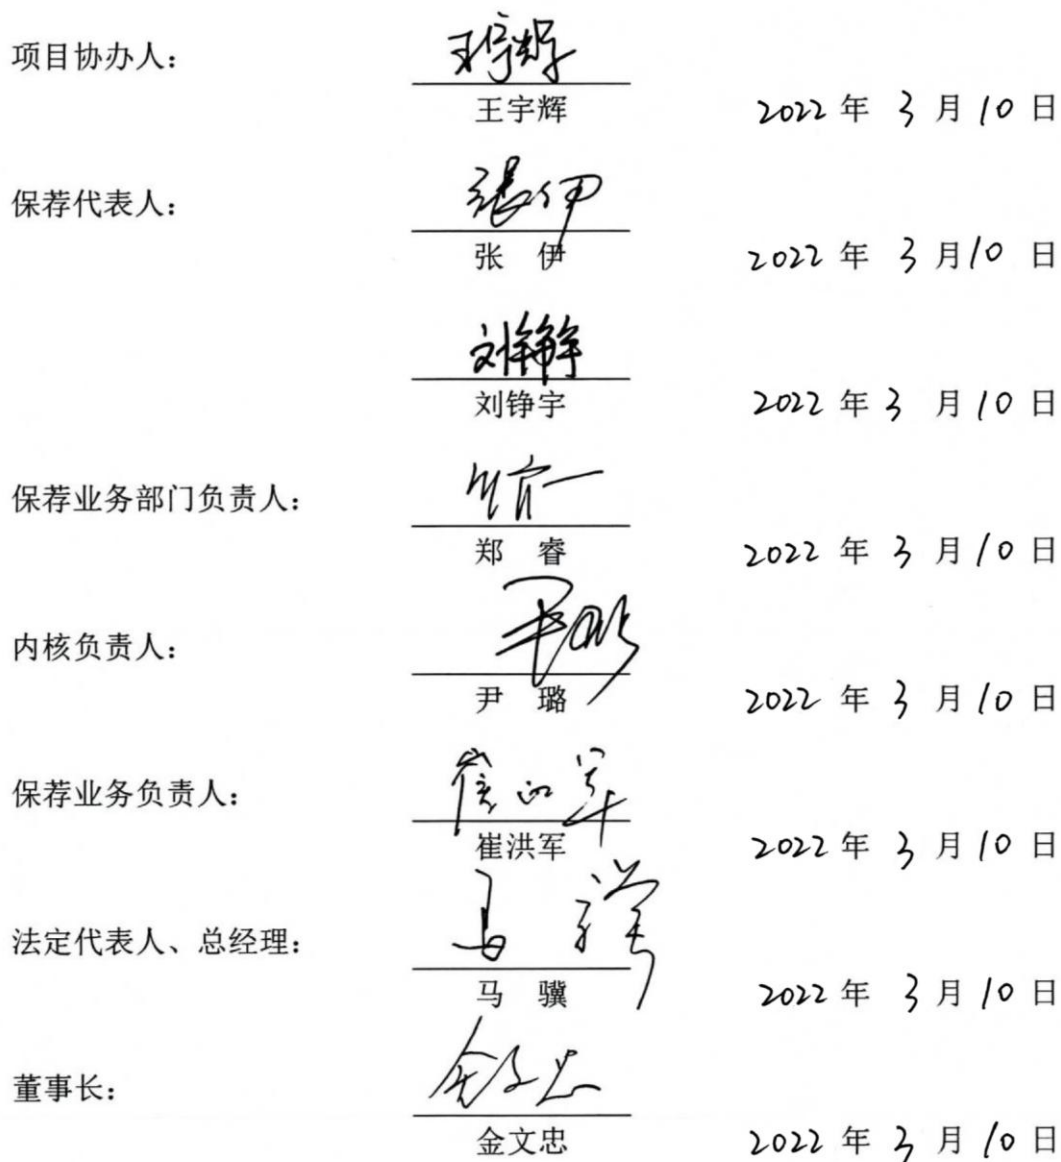 项目协办人：
王宇辉
王宇辉
2022 年 3 月 10 日
保荐代表人：
张伊
张 伊
2022 年 3 月 10 日
刘铮宇
刘铮宇
2022 年 3 月 10 日
保荐业务部门负责人：
郑 睿
2022 年 3 月 10 日
内核负责人：
尹璐
尹 璐
2022 年 3 月 10 日
保荐业务负责人：
崔洪军
崔洪军
2022 年 3 月 10 日
法定代表人、总经理：
马骥
马 骥
2022 年 3 月 10 日
董事长：
金文忠
金文忠
2022 年 3 月 10 日